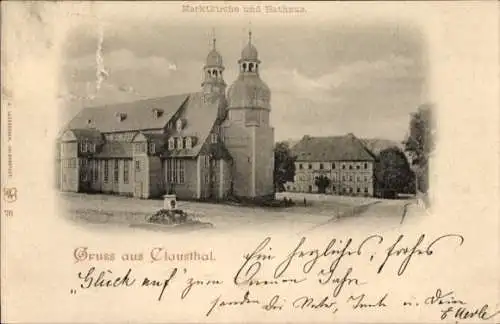 Marktkirche und Rathaus.
76
Gruss aus Clausthal.
Ein herzliches, frohes
„Glück auf" zum Jahr
senden dir Vater, Tante u. Dein